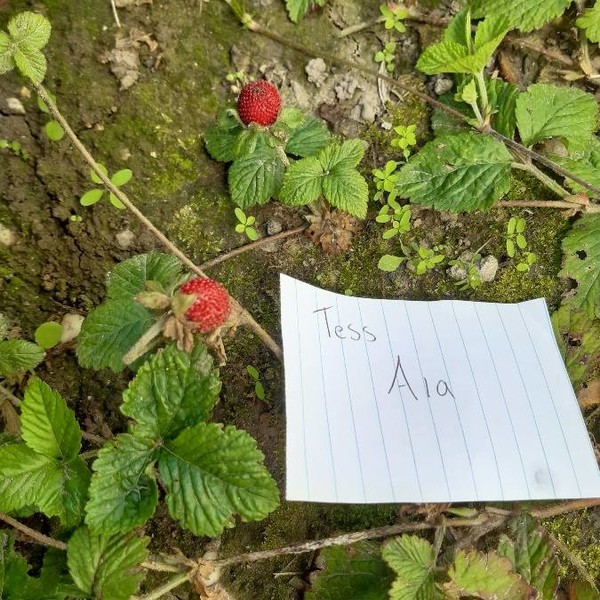 Tess
A1a